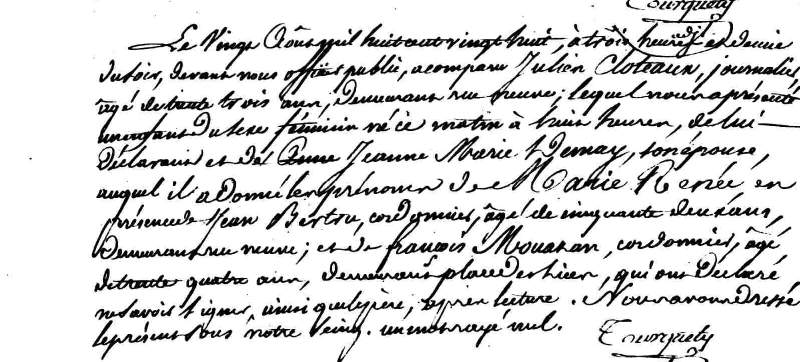 Turquety
Le Vingt Août mil huit cent vingt huit, à trois heures et demie
du soir, devant nous officier public, a comparu Julien Cloteaux, journalier,
âgé de trente trois ans, demeurant rue neuve; lequel nous a présenté
un enfant du sexe féminin né ce matin à huit heures, de lui
déclarant et de Anne Jeanne Marie Demay, son épouse,
auquel il a donné les prénoms de Marie Renée en
présence de Jean Bertru, cordonnier, âgé de cinquante deux ans,
demeurant rue neuve; et de françois Mouazan, cordonnier, âgé
de trente quatre ans, demeurant place des hier, qui ont déclaré
ne savoir signer, ainsi que le père, après lecture. Nous avons dressé
le présent sous notre seing. un mot rayé nul.
Turquety